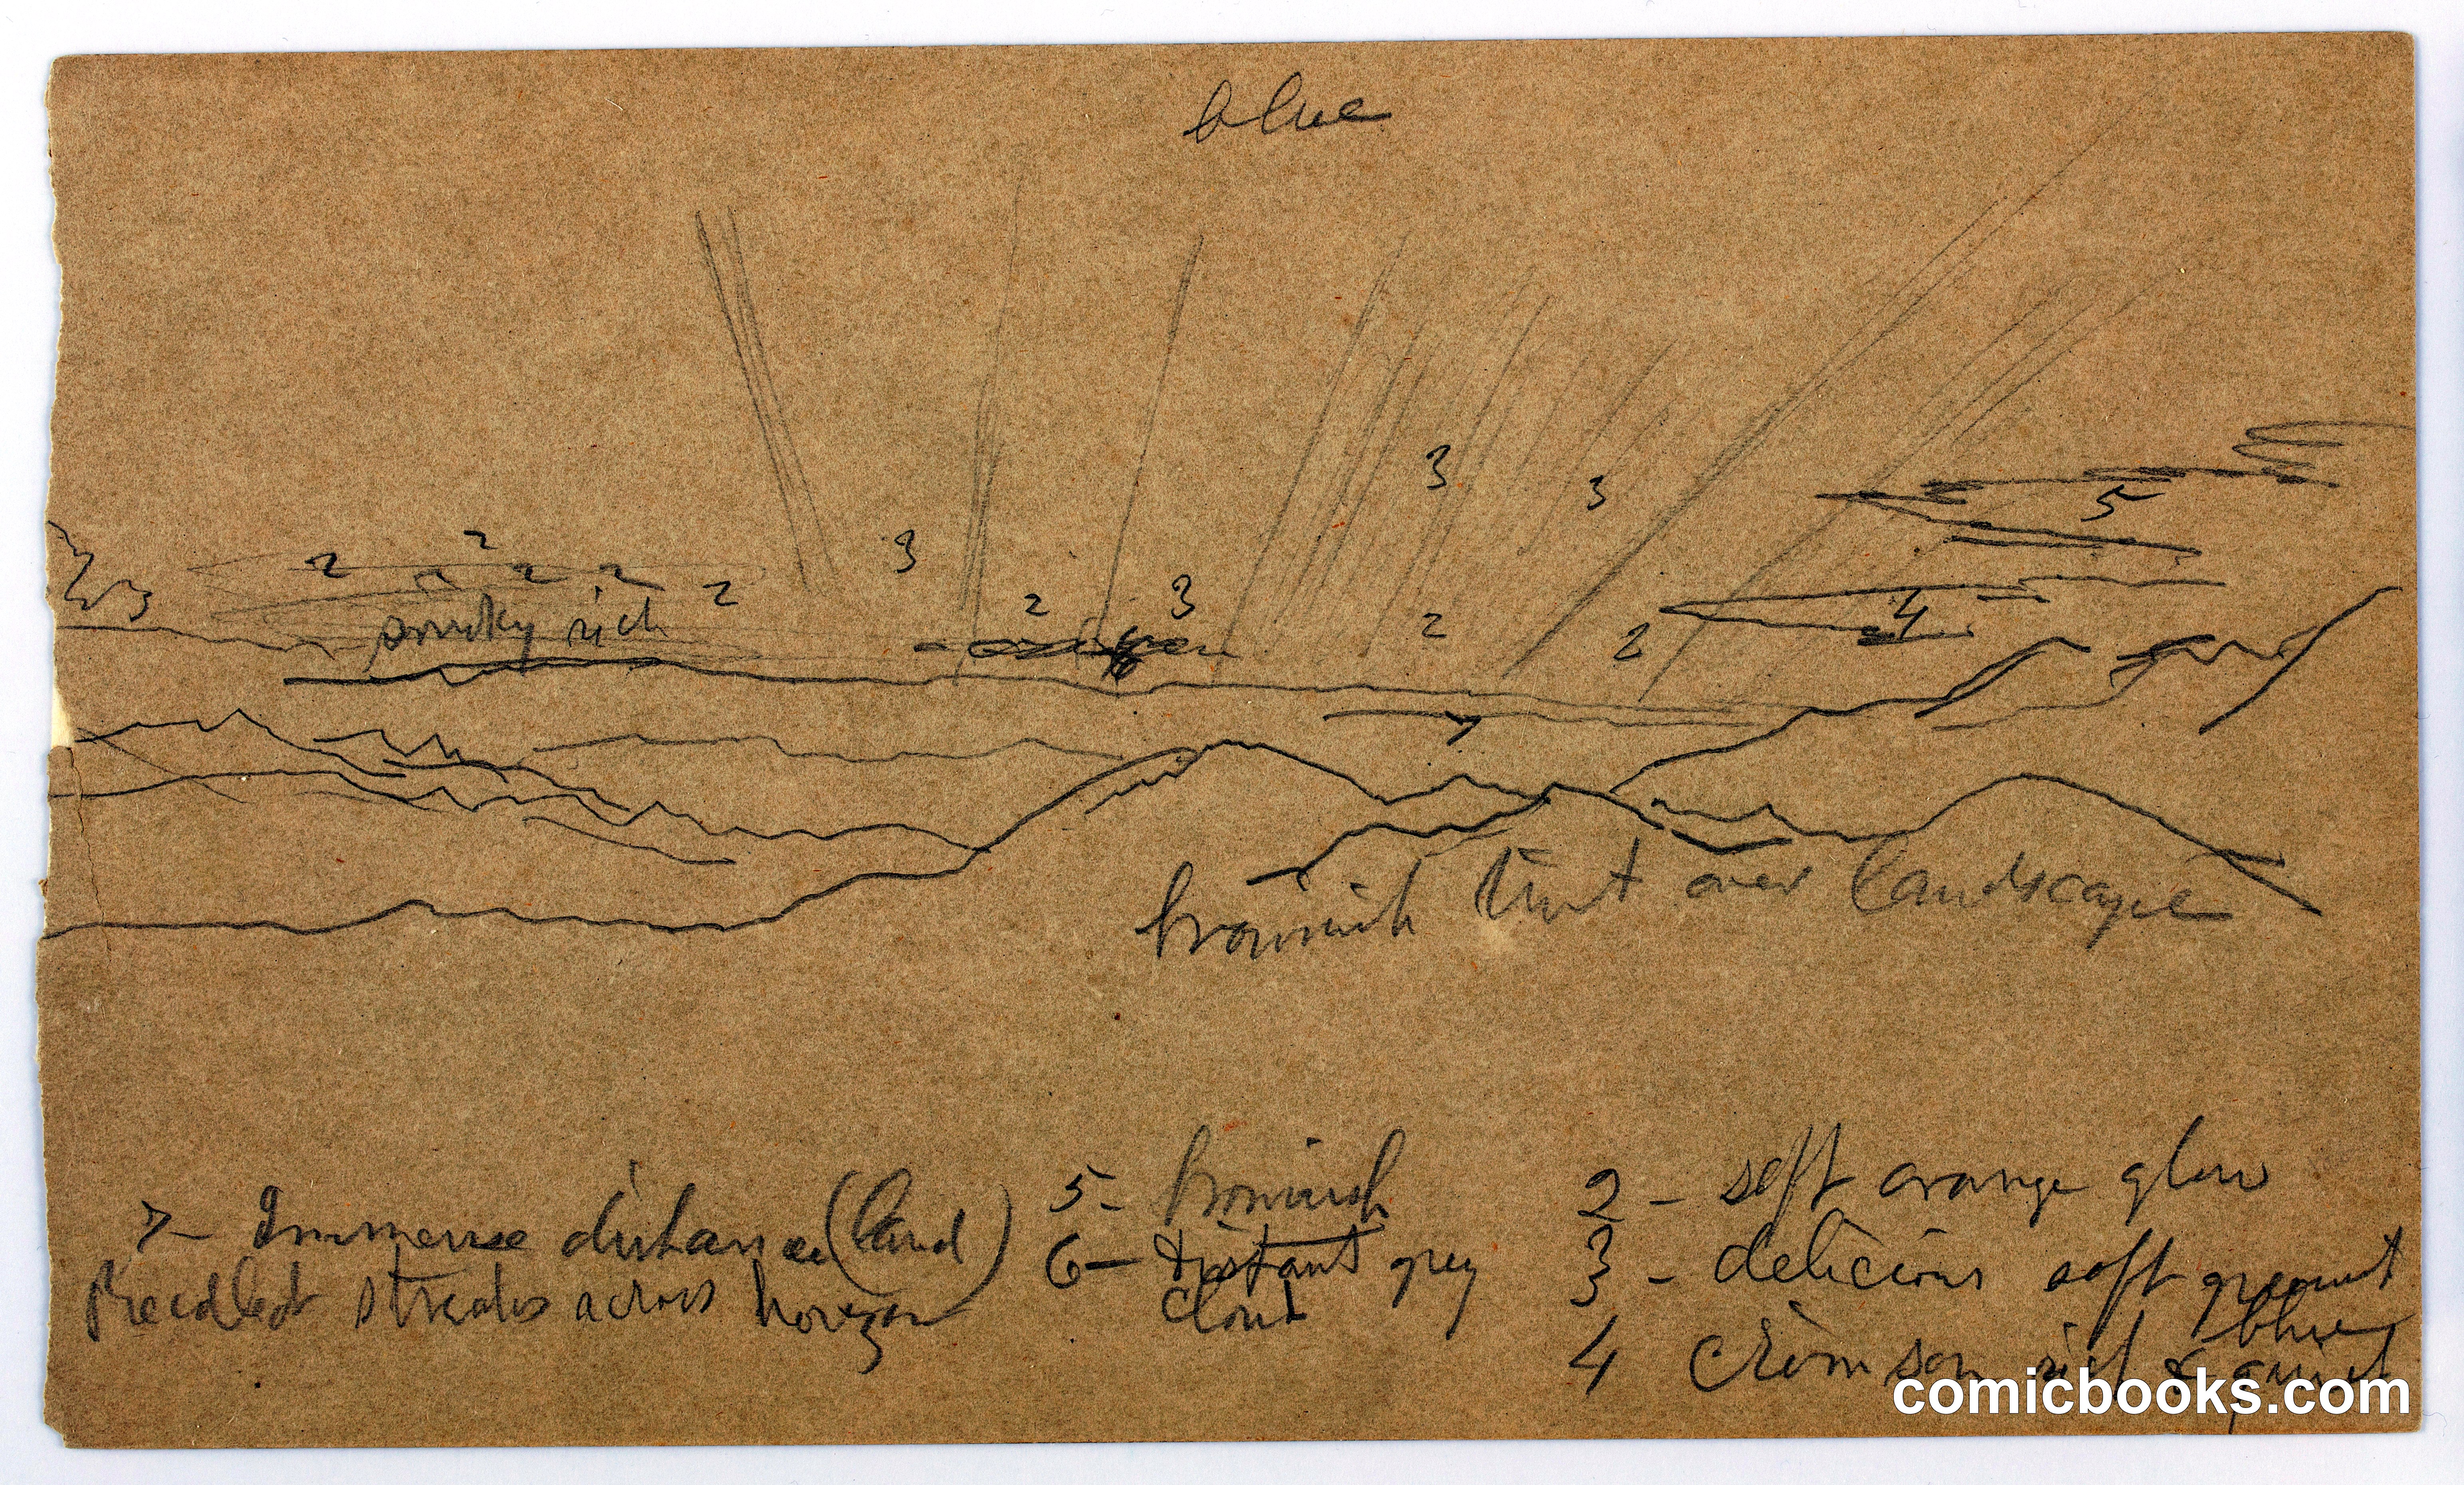 blue
3
3
5
2
2 2 2 2 2
3
3
smoky rich
2
3
2
2
4
6
7
brownish tint over landscape
7 - Immense distance (land)
streaks across horizon
5 - brownish
6 - distant grey
cloud
2 - soft orange glow
3 - delicious soft
blue
4 crimson rich & quiet
comicbooks.com